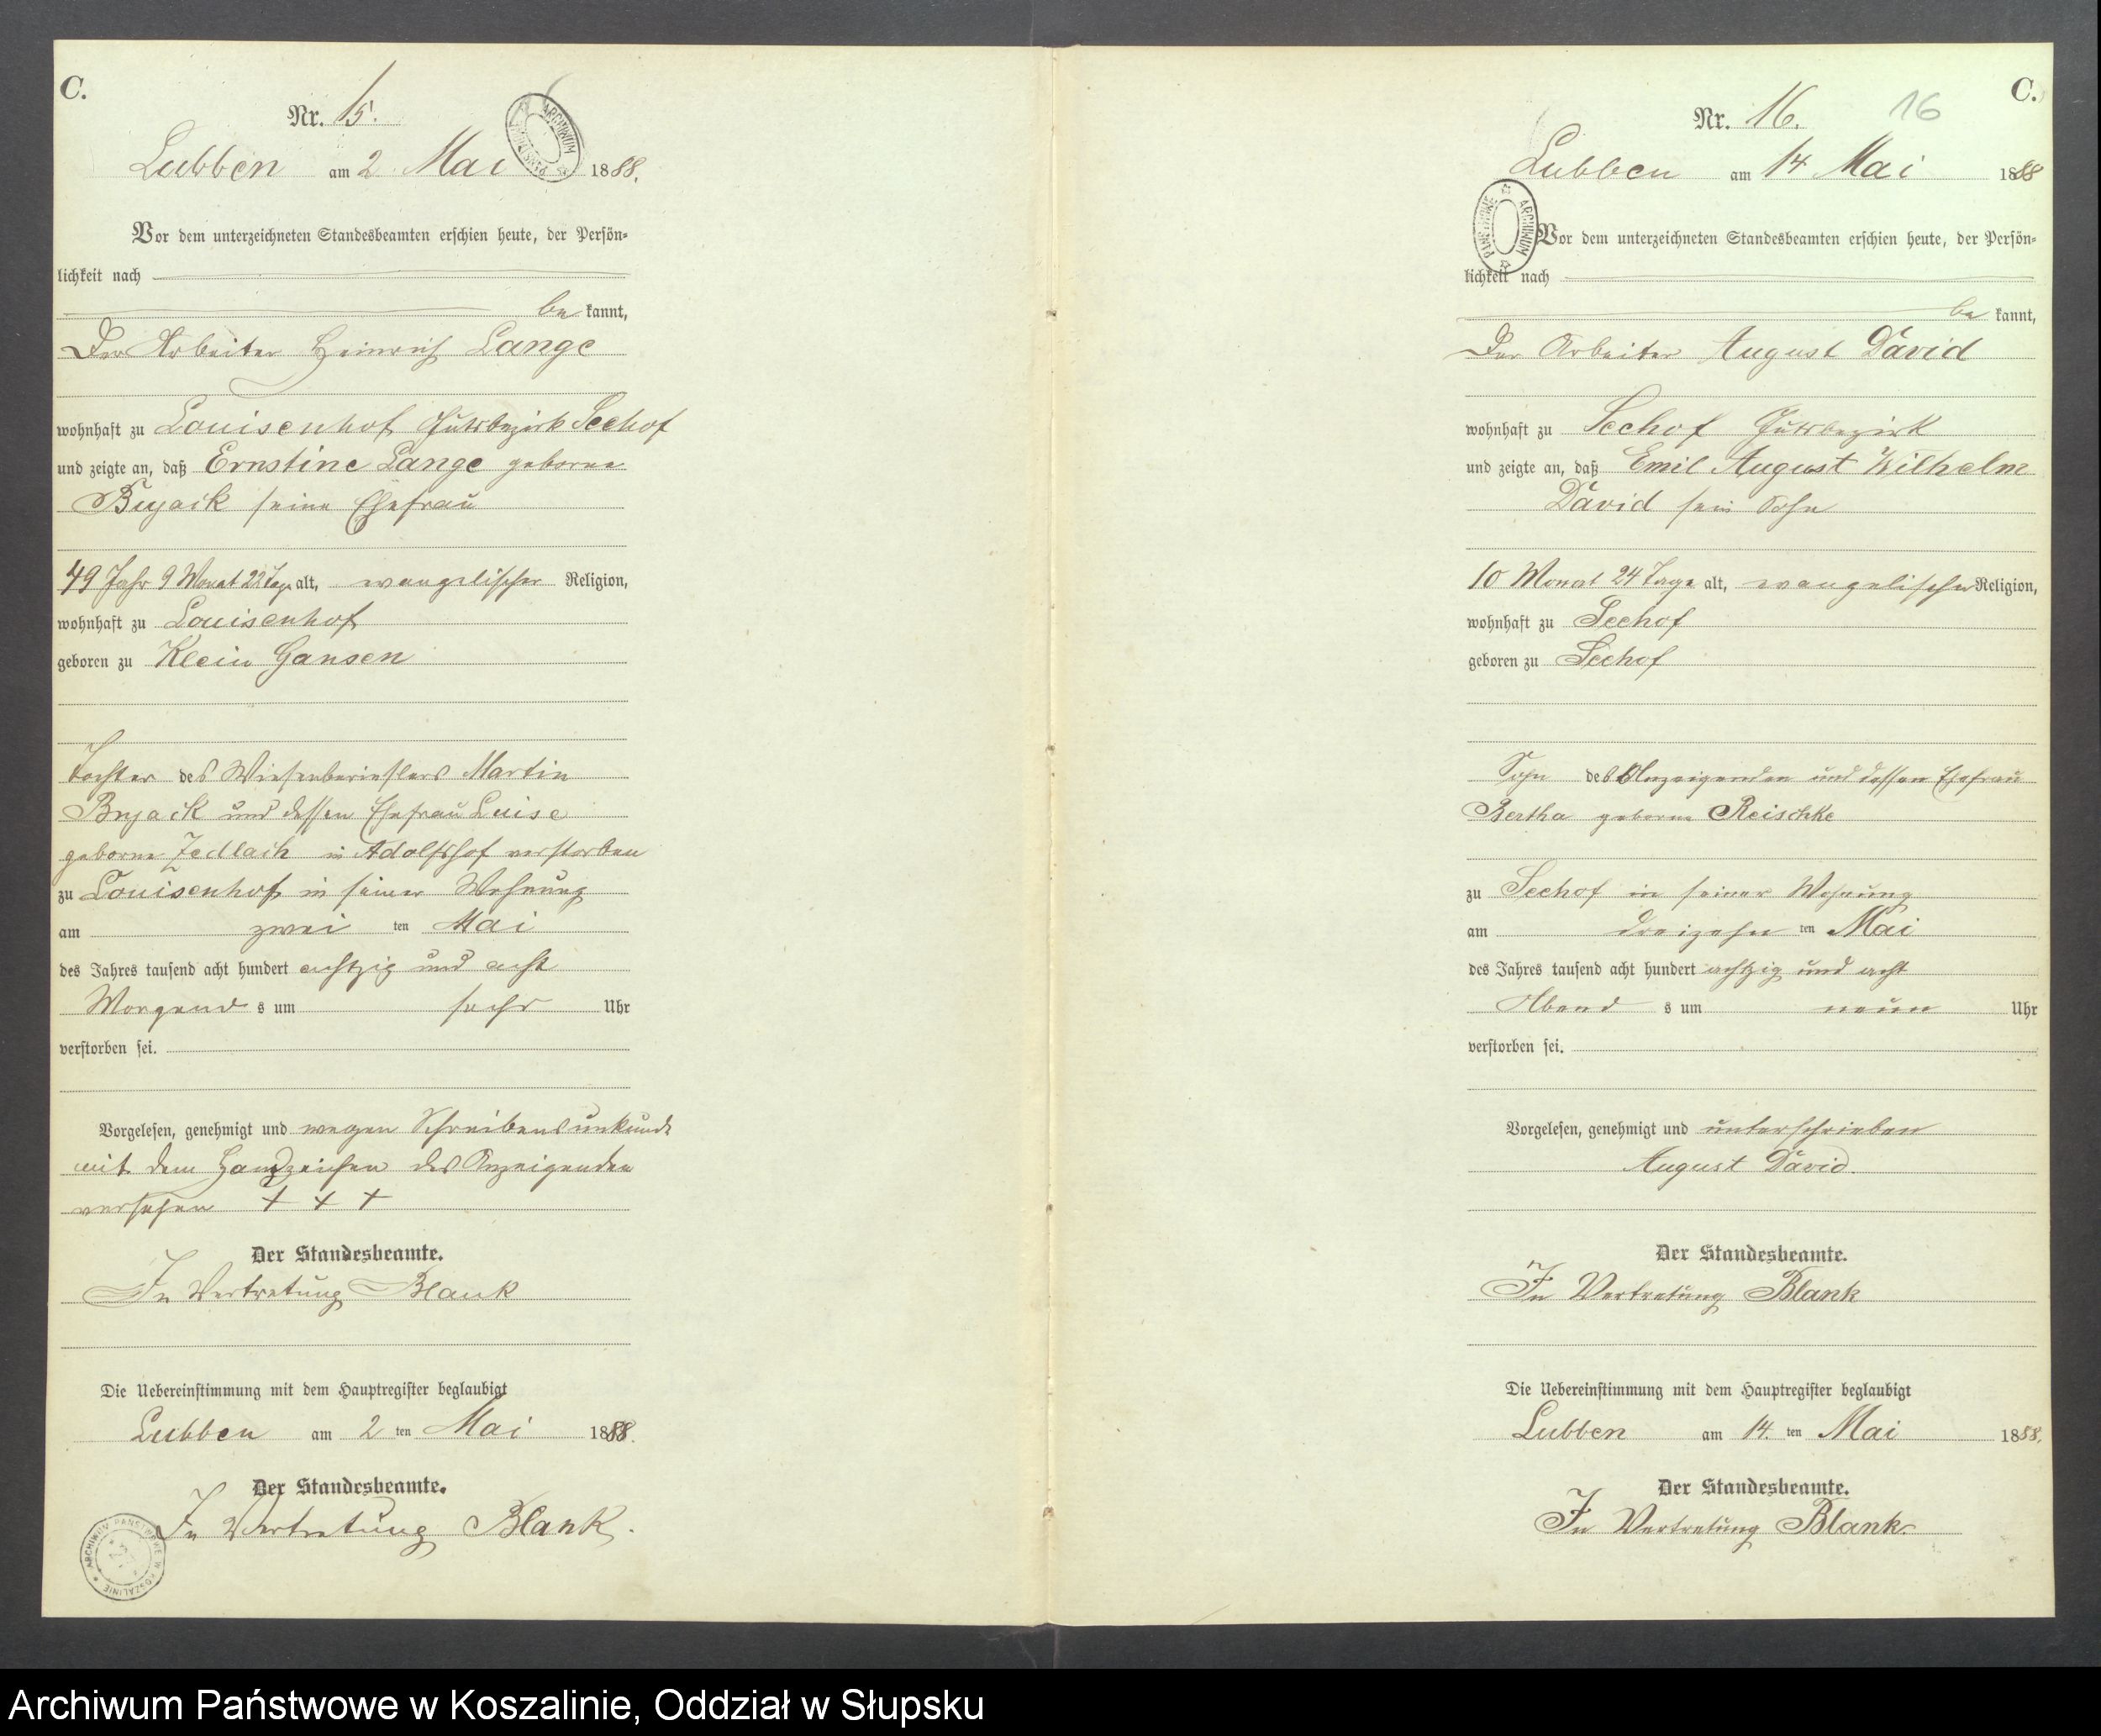 C.
Nr. 15.
Lubben am 2 Mai 1888.
ARCHIWUM PAŃSTWOWE
Vor dem unterzeichneten Standesbeamten erschien heute, der Persön-
lichkeit nach
be kannt,
Der Arbeiter Heinrich Lange
wohnhaft zu Louisenhof Gutsbezirk Seehof
und zeigte an, daß Ernstine Lange geborne
Bujack seine Ehefrau
49 Jahr 9 Monat 22 Tage alt, evangelischer Religion,
wohnhaft zu Louisenhof
geboren zu Klein Gansen
Tochter des Wiesenberieslers Martin
Bujack und dessen Ehefrau Luise
geborne Zedlach in Adolfshof verstorben
zu Louisenhof in seiner Wohnung
am zwei ten Mai
des Jahres tausend acht hundert achtzig und acht
Morgend s um sechs Uhr
verstorben sei.
Vorgelesen, genehmigt und wegen Schreibensunkunde
mit dem Handzeichen des Anzeigenden
versehen + + +
Der Standesbeamte.
In Vertretung Blank
Die Uebereinstimmung mit dem Hauptregister beglaubigt
Lubben am 2 ten Mai 1888.
Der Standesbeamte.
In Vertretung Blank.
ARCHIWUM PAŃSTWOWE W KOSZALINIE
C.
Nr. 16. 16
Lubben am 14 Mai 1888
ARCHIWUM PAŃSTWOWE
Vor dem unterzeichneten Standesbeamten erschien heute, der Persön-
lichkeit nach
be kannt,
Der Arbeiter August David
wohnhaft zu Seehof Gutsbezirk
und zeigte an, daß Emil August Wilhelm
David sein Sohn
10 Monat 24 Tage alt, evangelischer Religion,
wohnhaft zu Seehof
geboren zu Seehof
Sohn des Anzeigenden und dessen Ehefrau
Bertha geborne Reischke
zu Seehof in seiner Wohnung
am dreizehn ten Mai
des Jahres tausend acht hundert achtzig und acht
Abend s um neun Uhr
verstorben sei.
Vorgelesen, genehmigt und unterschrieben
August David.
Der Standesbeamte.
In Vertretung Blank
Die Uebereinstimmung mit dem Hauptregister beglaubigt
Lubben am 14. ten Mai 1888.
Der Standesbeamte.
In Vertretung Blank
Archiwum Państwowe w Koszalinie, Oddział w Słupsku